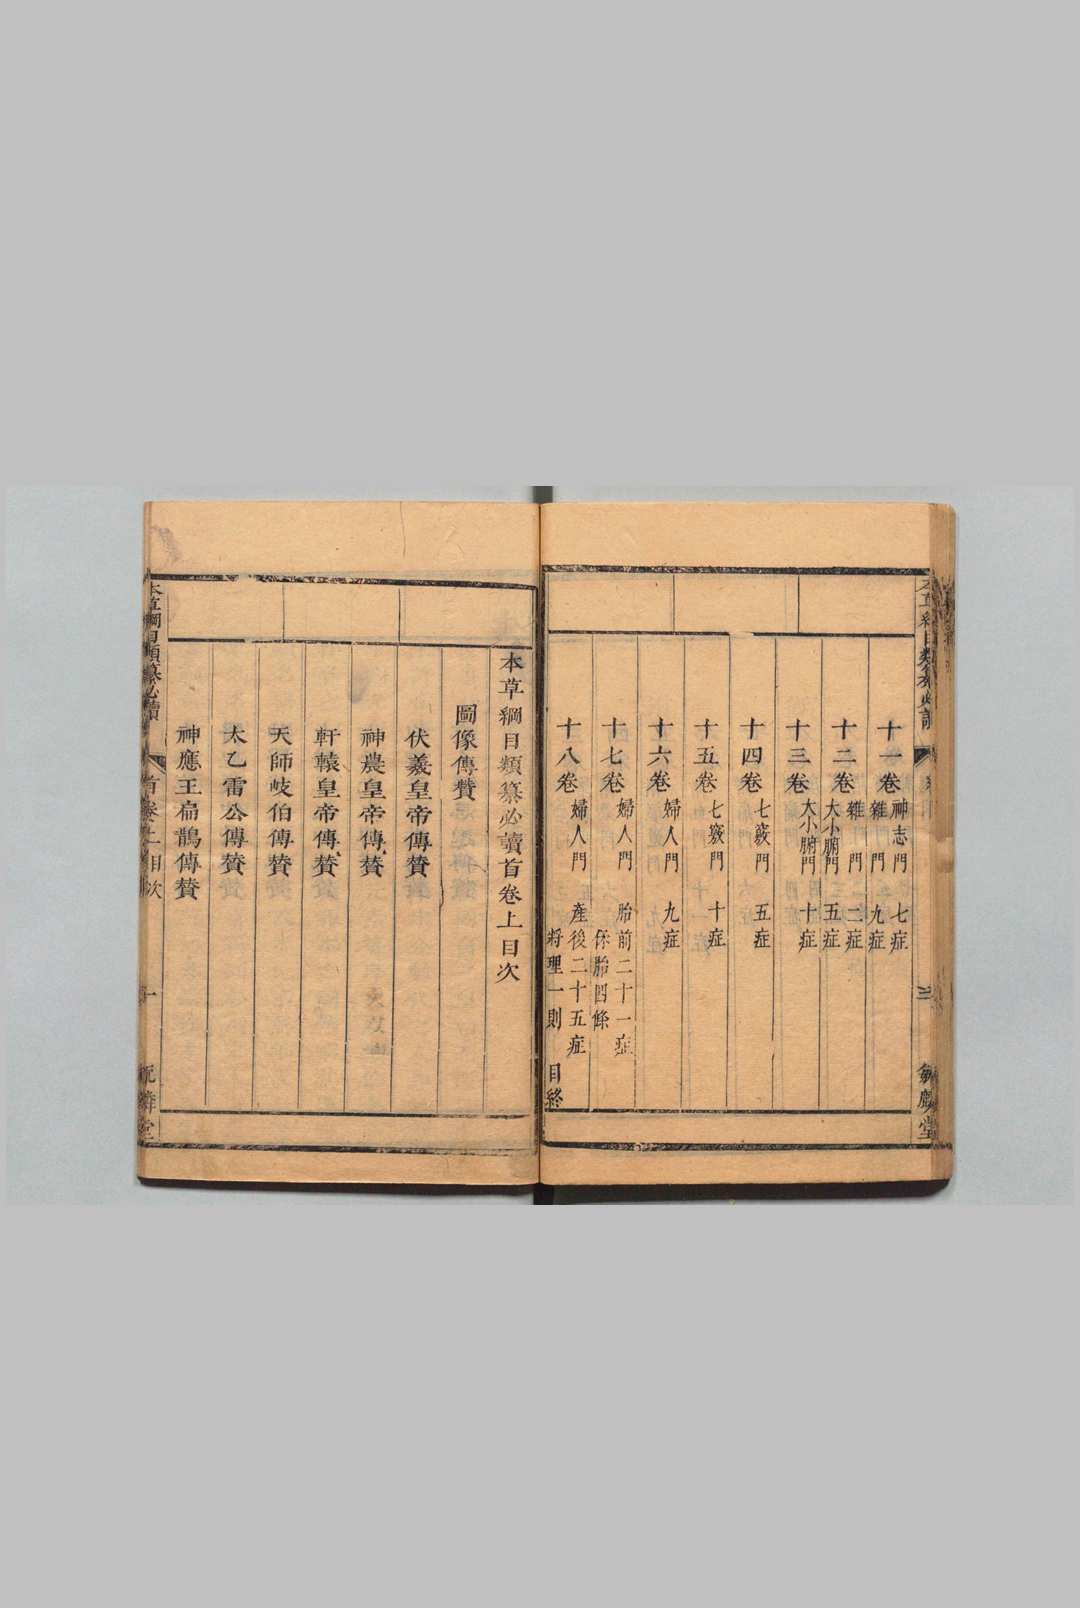 十一卷 神志門 七症
雜門 九症
十二卷 雜門 二症
大小腑門 五症
十三卷 大小腑門 十症
十四卷 七竅門 五症
十五卷 七竅門 十症
十六卷 婦人門 九症
十七卷 婦人門 胎前二十一症
保胎四條
十八卷 婦人門 產後二十五症
將理一則 目終
本草綱目類纂必讀首卷上目次
圖像傳贊
伏羲皇帝傳贊
神農皇帝傳贊
軒轅皇帝傳贊
天師岐伯傳贊
太乙雷公傳贊
神應王扁鵲傳贊
本草綱目類纂必讀 首卷上目次 一